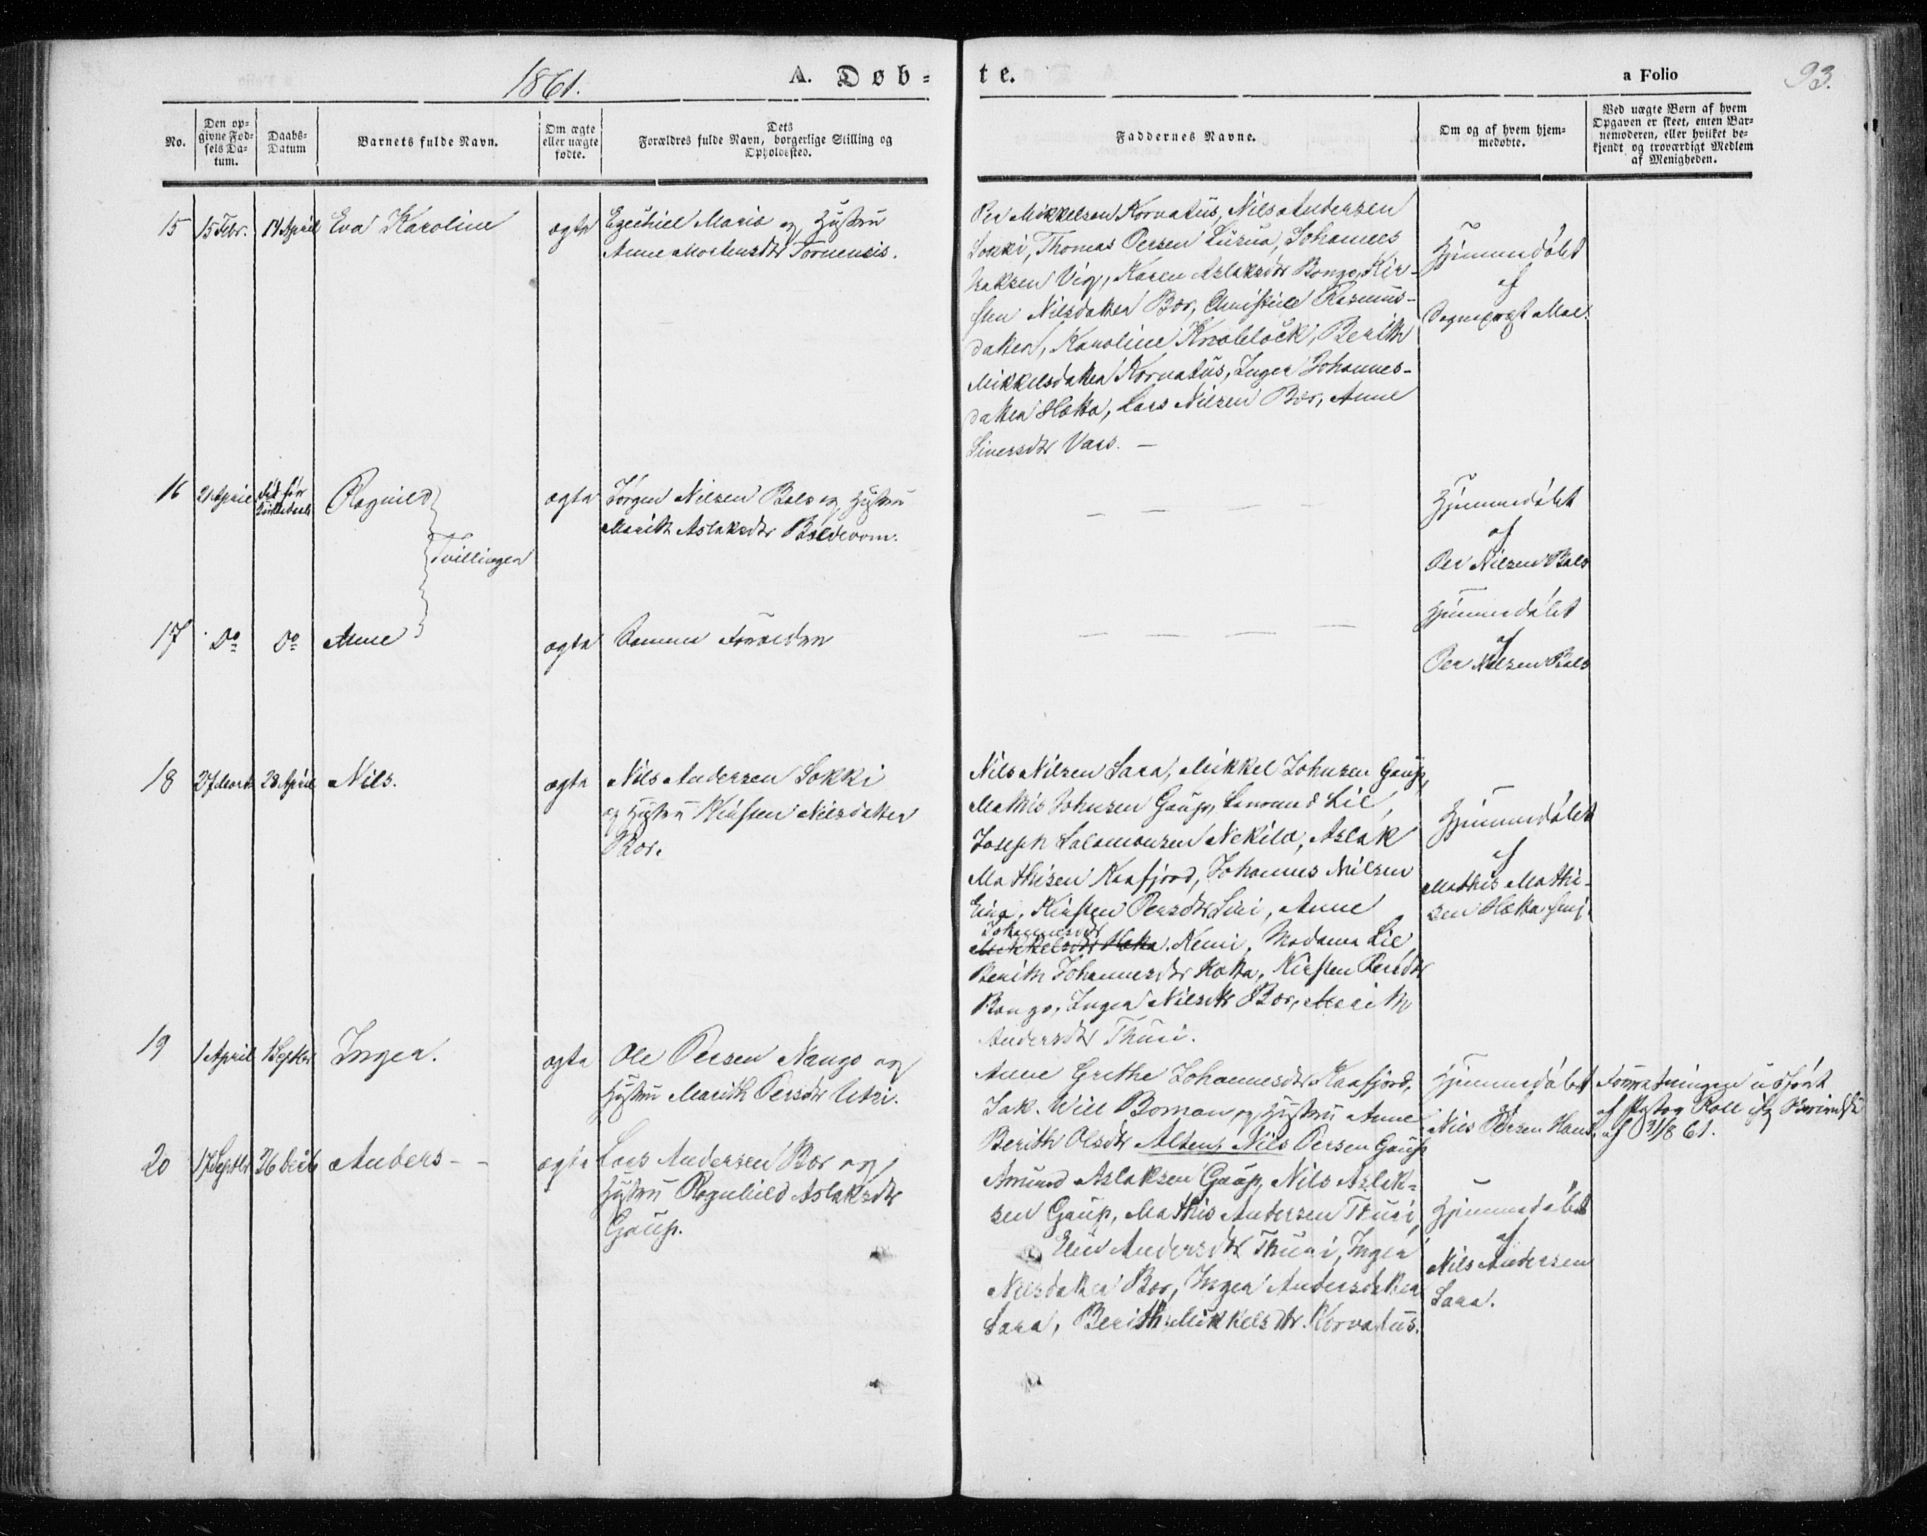 1861.
A. Døb=
te.
a Folio
93.
No.
Den op-
givne Fød-
sels Da-
tum.
Daabs-
Datum
Barnets fulde Navn.
Om ægte
eller uægte
fødte.
Dets
Forældres fulde Navn, borgerlige Stilling og
Opholdssted.
Faddernes Navne.
Om og af hvem hjem-
medøbte.
Ved uægte Børn af hvem
Opgaven er skeet, enten Bar-
nemoderen, eller hvilket be-
kjendt og troværdigt Medlem
af Menigheden.
15
15 Febr.
14 April
Eva Karoline
ægte
Ezechiel Maria og Hustru
Anne Mortensdtr Tornensis.
Per Mikkelsen Kornatus, Nils Andersen
Sokki, Thomas Persen Lusua, Johannes
Isaksen Vig, Karen Aslaksdtr Bongo, Kir-
sten Nilsdatter Bær, Christine Rasmus-
datter, Karoline Knobloch, Berith
Mikkelsdatter Kornatus, Inger Johannes-
datter Hætta, Lars Nilsen Bær, Anne
Siversdtr Vars. —
Hjemmedøbt
af
Sognepræst Moe.
16
21 April
Ragnild
Tvillinger
ægte
Jørgen Nilsen Bals og Hustru
Marith Aslaksdtr
— — — —
Hjemmedøbt
af
Per Nilsen Bals
17
Do
Do
Anne
ægte
Samme Forældre
— — — —
Hjemmedøbt
af
Per Nilsen Bals
18
27 Marts
28 April
Nils.
ægte
Nils Andersen Sokki
og Hustru Kirsten Nilsdatter
Bær.
Nils Nilsen Sara, Mikkel Johnsen Gaup,
Mathis Johnsen Gaup, Lie,
Joseph Salomonsen Nekila, Aslak
Mathisen Kaafjord, Johannes Nilsen
Eira, Kirsten Persdtr Siri, Anne
Johannesdtr
Mikkelsdtr Hætta. Nemi, Madame Lie
Berith Johannesdtr Hætta, Kirsten Persdtr
Bongo, Inger Nilsdtr Bær, Marith
Andersdtr Thuri.
Hjemmedøbt
af
Mathis Mathi-
sen Hætta
19
1 April
1 Septbr
Inger.
ægte
Ole Persen Nango og
Hustru Marith Persdtr Utsi.
Anne Grethe Johannesdtr Kaafjord,
Jak. Will Boman og Hustru Anne
Berith Olsdtr Alten, Nils Persen Gaup
Hjemmedøbt
Nils Persen
Forretningen udført
af Pastor Roll
af 31/8 61.
20
17 Septbr
26 Decbr
Anders - -
ægte
Lars Andersen Bær og
Hustru Ragnhild Aslaksdtr
Gaup.
Amund Aslaksen Gaup, Nils Aslak-
sen Gaup, Mathis Andersen Thuri,
Elin Andersdtr Thuri, Inger
Nilsdatter Bær, Inger Andersdatter
Sara, Berith Mikkelsdtr. Kornatus.
Hjemmedøbt
af
Nils Andersen
Sara.